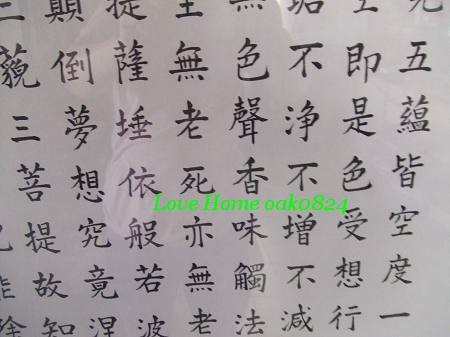 五蘊皆空度一
即是色受想行
垢不浄不增不減
無色聲香味觸法
無老死亦無老
提薩埵依般若波
顛倒夢想究竟涅
三藐三菩提故知
Love Home oak0824